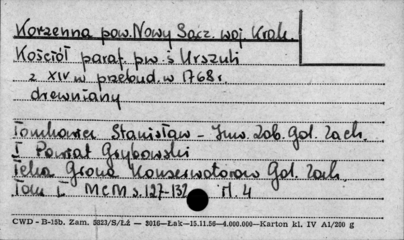 Korzenna pow. Nowy Sącz. woj. Krak.
Kościół paraf. pw. ś Urszuli
z XIV w przebud. w 1768 r.
drewniany
Tomkowicz Stanisław - Inw. Zab. Gal. Zach.
I Powiat Grybowski
Teka Grona Konserwatorow Gal. Zach.
Tom I MCM s. 127-132 M. 4
CWD - B-15b. Zam. 5823/S/ŁŻ — 3016—Łak—15.11.56—4.000.000—Karton kl. IV A1/200 g